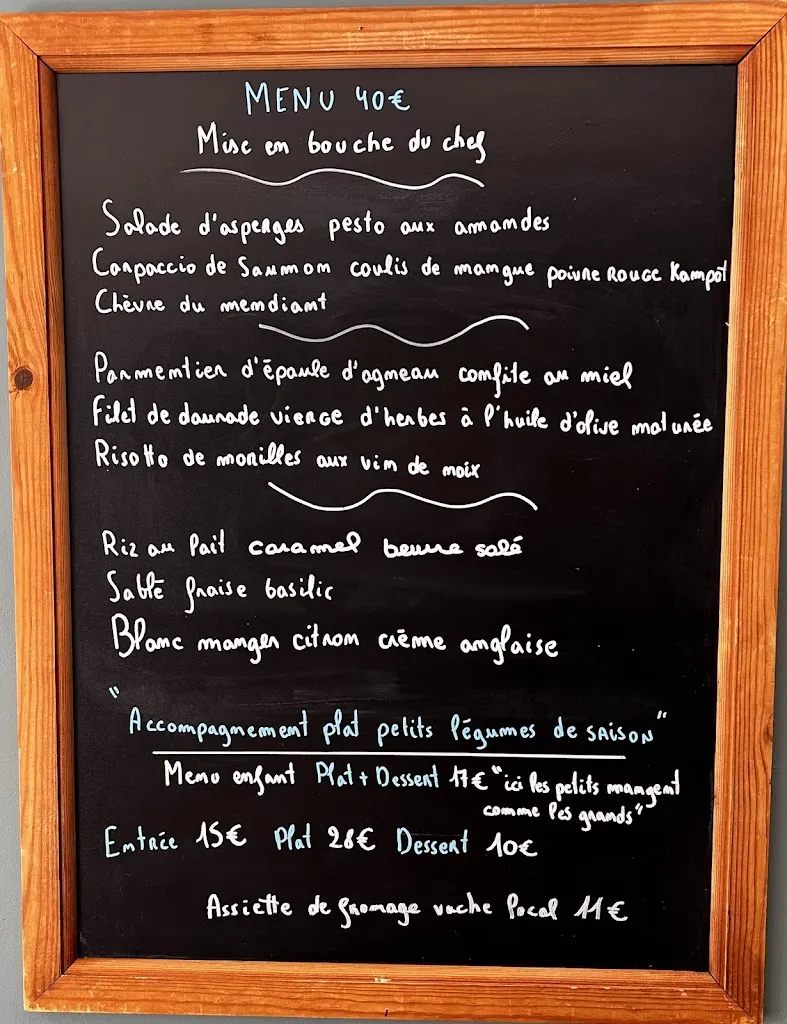 MENU 40€
Mise en bouche du chef
Salade d'asperges pesto aux amandes
Carpaccio de Saumon coulis de mangue poivre ROUGE Kampot
Chèvre du mendiant
Parmentier d'épaule d'agneau confite au miel
Filet de daurade vierge d'herbes à l'huile d'olive maturée
Risotto de morilles aux vin de noix
Riz au lait caramel beurre salé
Sablé fraise basilic
Blanc manger citron crème anglaise
"Accompagnement plat petits légumes de SAISON"
Menu enfant Plat + Dessert 17€ "ici les petits mangent
comme les grands"
Entrée 15€ Plat 28€ Dessert 10€
Assiette de fromage vache local 11€